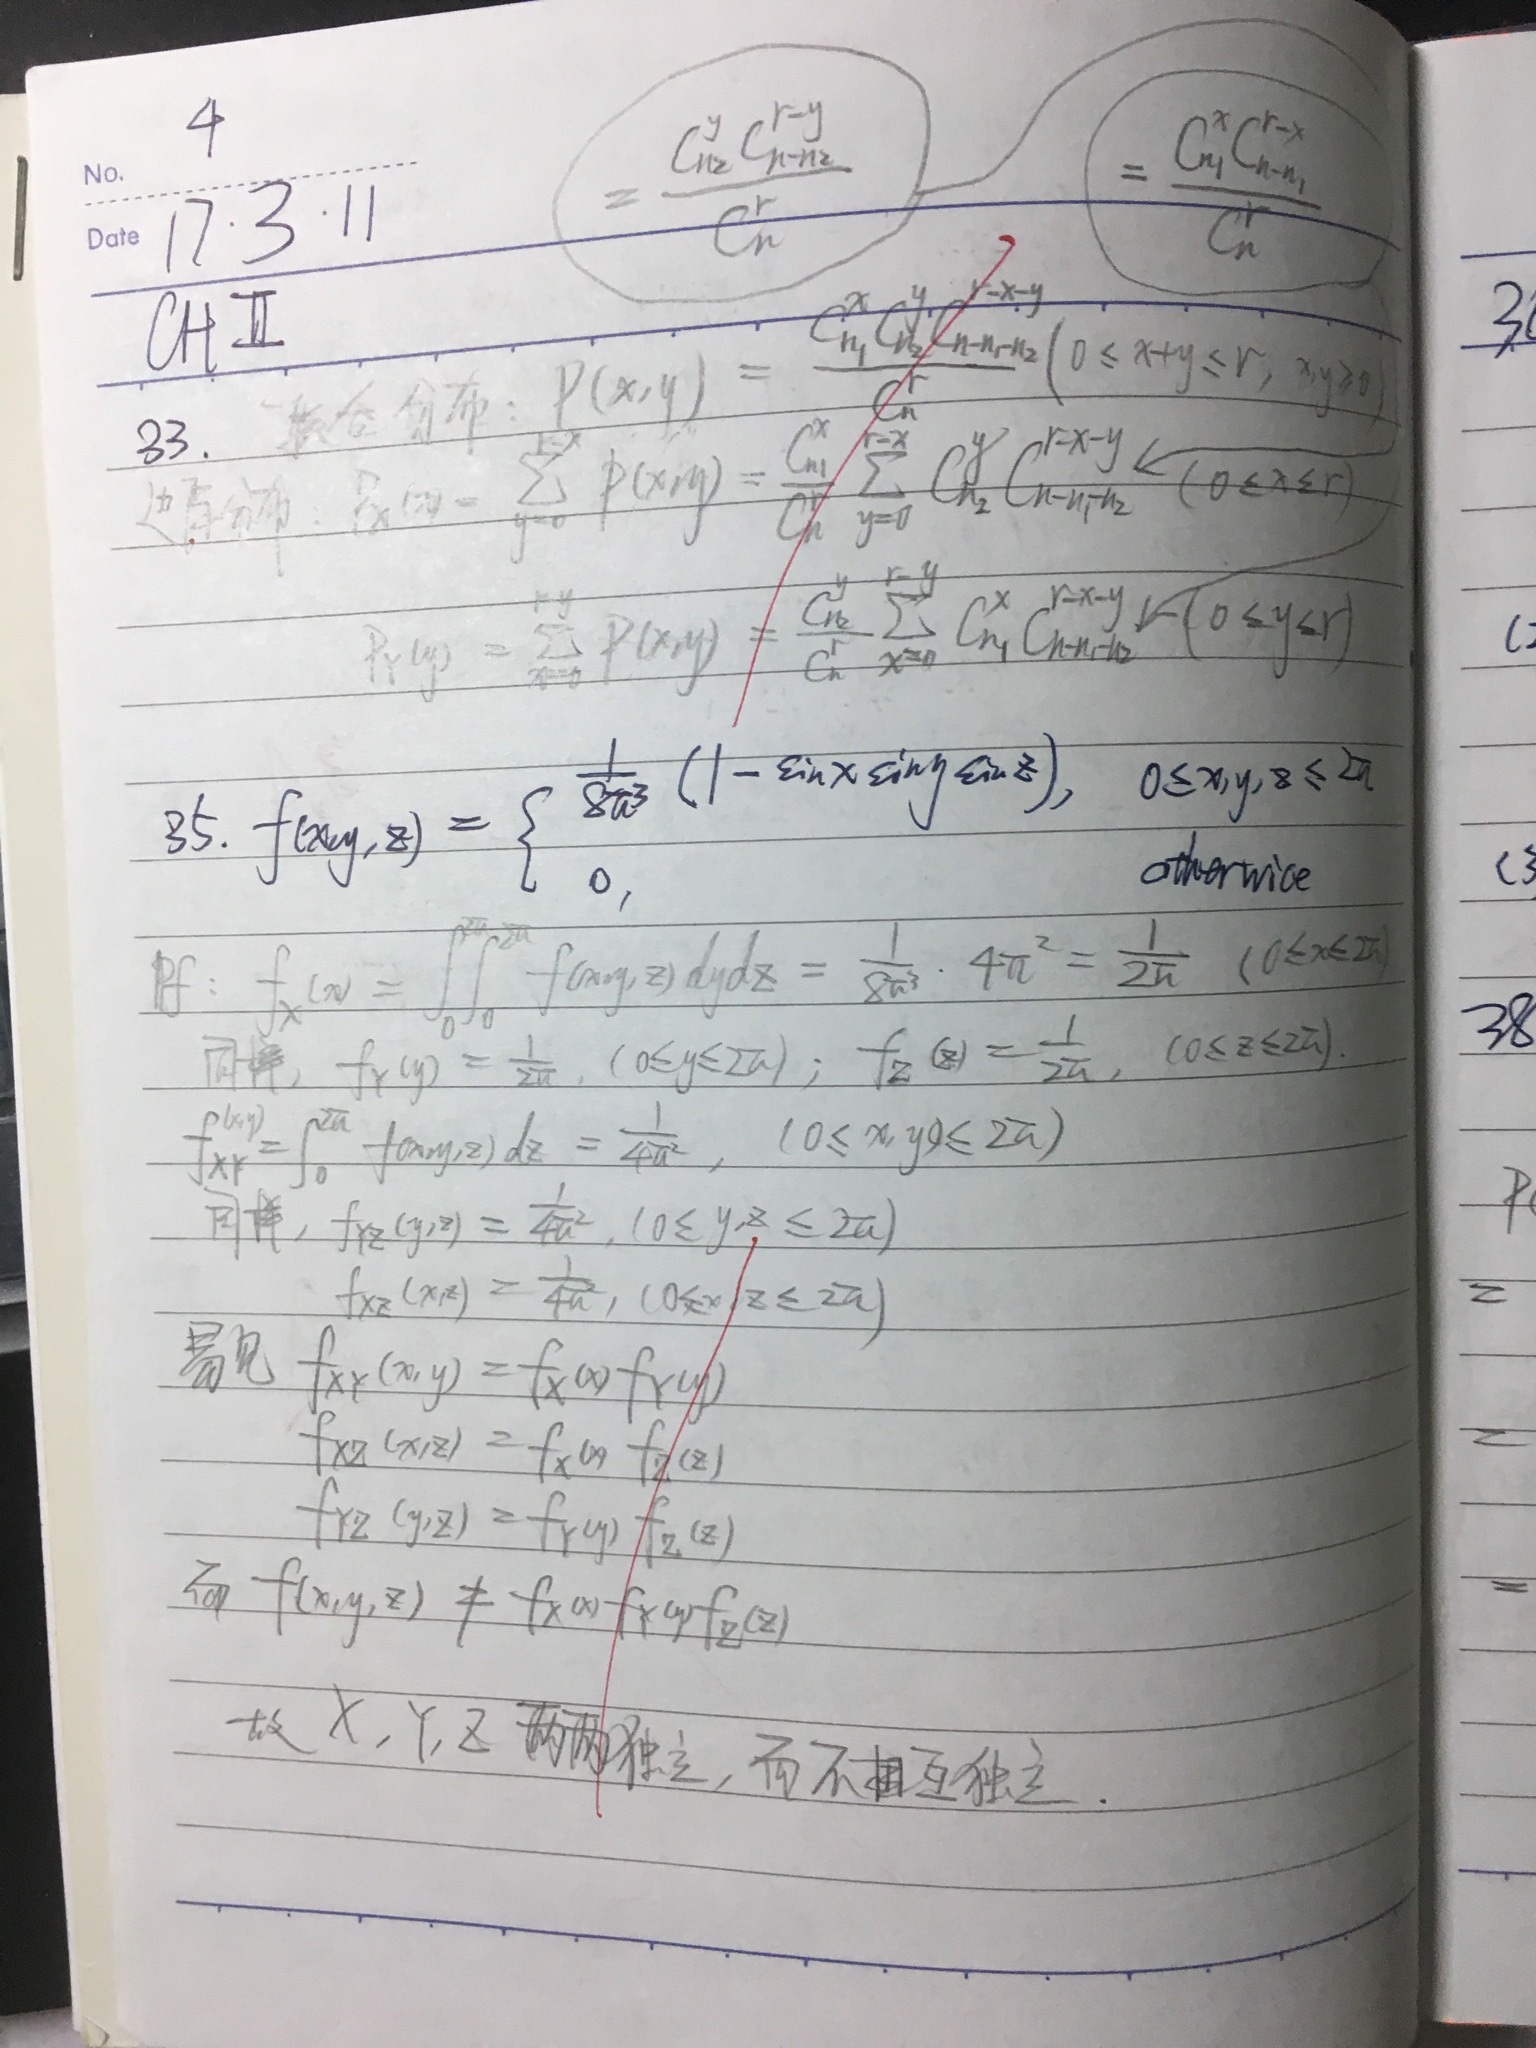 No. 4
Date 17.3.11
= C_{n_2}^{y} C_{n-n_2}^{r-y} / C_n^r
= C_{n_1}^{x} C_{n-n_1}^{r-x} / C_n^r
CH Ⅱ
33. 联合分布: P(x,y) = C_{n_1}^{x} C_{n_2}^{y} C_{n-n_1-n_2}^{r-x-y} / C_n^r (0≤x+y≤r, x,y≥0)
边际分布: P_X(x) = ∑_{y=0}^{r-x} P(x,y) = C_{n_1}^{x} / C_n^r ∑_{y=0}^{r-x} C_{n_2}^{y} C_{n-n_1-n_2}^{r-x-y} (0≤x≤r)
P_Y(y) = ∑_{x=0}^{r-y} P(x,y) = C_{n_2}^{y} / C_n^r ∑_{x=0}^{r-y} C_{n_1}^{x} C_{n-n_1-n_2}^{r-x-y} (0≤y≤r)
35. f(x,y,z) = { 1/8π³ (1 - sinx siny sinz), 0≤x,y,z≤2π
0, otherwise
Pf: f_X(x) = ∫_0^{2π}∫_0^{2π} f(x,y,z) dydz = 1/8π³ · 4π² = 1/2π (0≤x≤2π)
同样, f_Y(y) = 1/2π, (0≤y≤2π); f_Z(z) = 1/2π, (0≤z≤2π).
f_{XY}(x,y) = ∫_0^{2π} f(x,y,z) dz = 1/4π², (0≤x,y)≤2π)
同样, f_{YZ}(y,z) = 1/4π², (0≤y,z≤2π)
f_{XZ}(x,z) = 1/4π², (0≤x,z≤2π)
易见 f_{XY}(x,y) = f_X(x) f_Y(y)
f_{XZ}(x,z) = f_X(x) f_Z(z)
f_{YZ}(y,z) = f_Y(y) f_Z(z)
而 f(x,y,z) ≠ f_X(x) f_Y(y) f_Z(z)
故 X, Y, Z 两两独立, 而不相互独立.
38